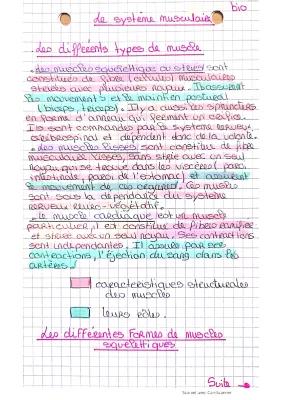 bio
Le système musculaire
Les différents types de muscle
. Les muscles squelettique ou striés sont
constitués de fibre (cellules) musculaires
striées avec plusieurs noyaux. Ils assurent
les mouvements et le maintien postural
(biceps, triceps). Il y a aussi les sphincters
en forme d'anneau qui ferment un orifice.
Ils sont commandés par le système nerveux
cérébrospinal et dépendent donc de la volonté.
. Les muscles lisses sont constitués de fibre
musculaire lisses, sans strie avec un seul
noyau qui se trouve dans les viscères (paroi
intestinale, paroi de l'estomac) et assurent
le mouvement de ces organes. Ces muscles
sont sous la dépendance du système
nerveux neuro-végétatif.
. Le muscle cardiaque est un muscle
particulier, il est constitué de fibres ramifiée
et striée avec un seul noyau. Ses contractions
sont indépendantes. Il assure par ses
contractions, l'éjection du sang dans les
artères.
caractéristiques structurales
des muscles
leurs rôles.
Les différentes formes de muscles
squelettiques
Suite